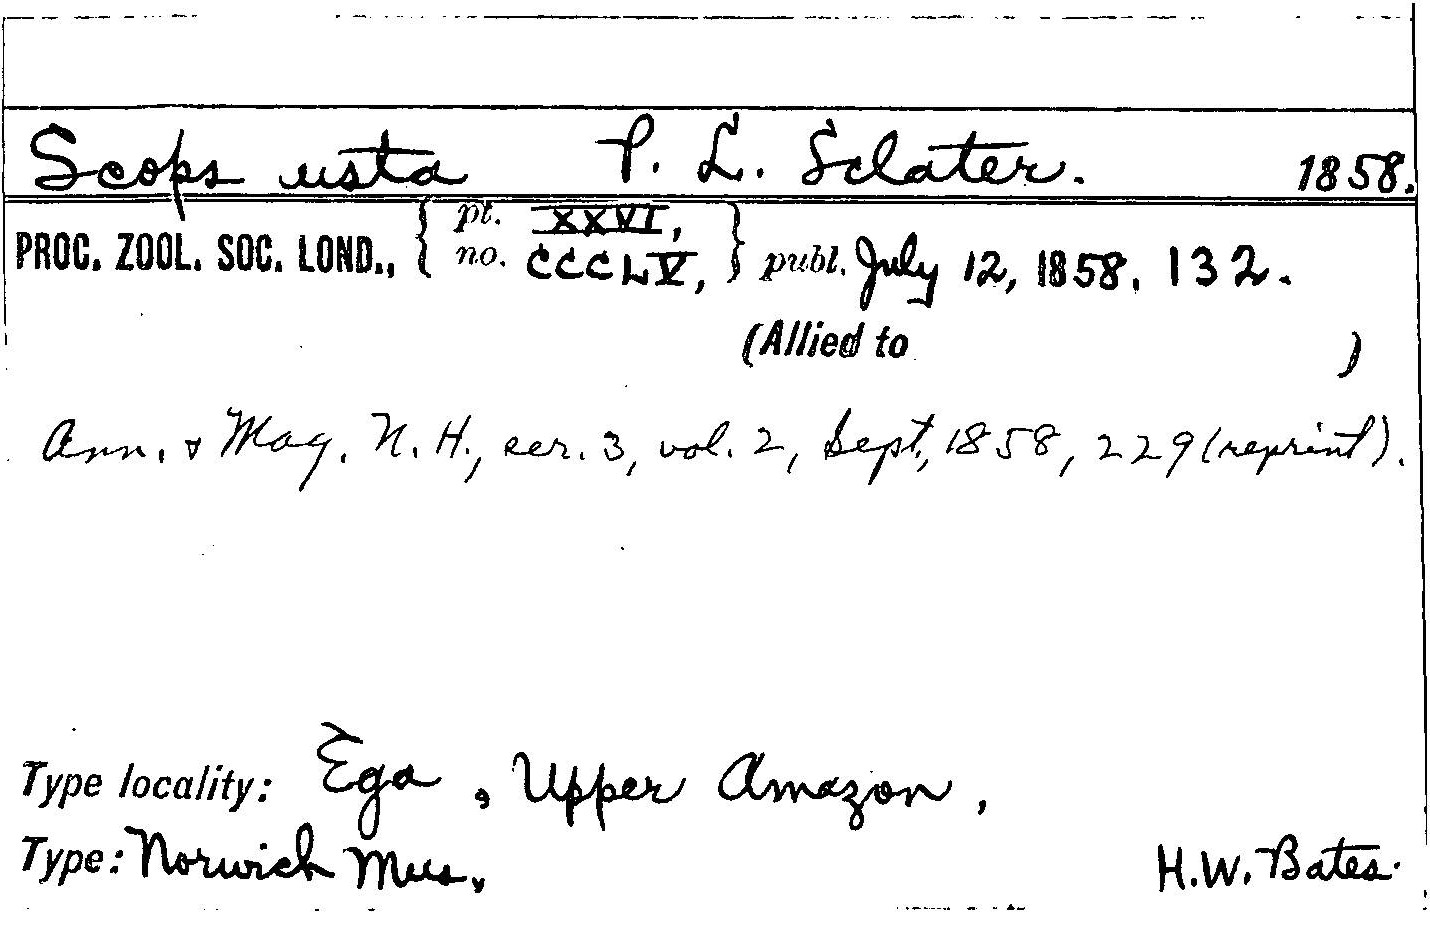 Scops usta P. L. Sclater. 1858.
PROC. ZOOL. SOC. LOND., { pt. XXVI, no. CCCLV, } publ. July 12, 1858. 132.
(Allied to )
Ann. & Mag. N. H., ser. 3, vol. 2, Sept, 1858, 229 (reprint).
Type locality: Ega, Upper Amazon,
Type: Norwich Mus. H.W. Bates.